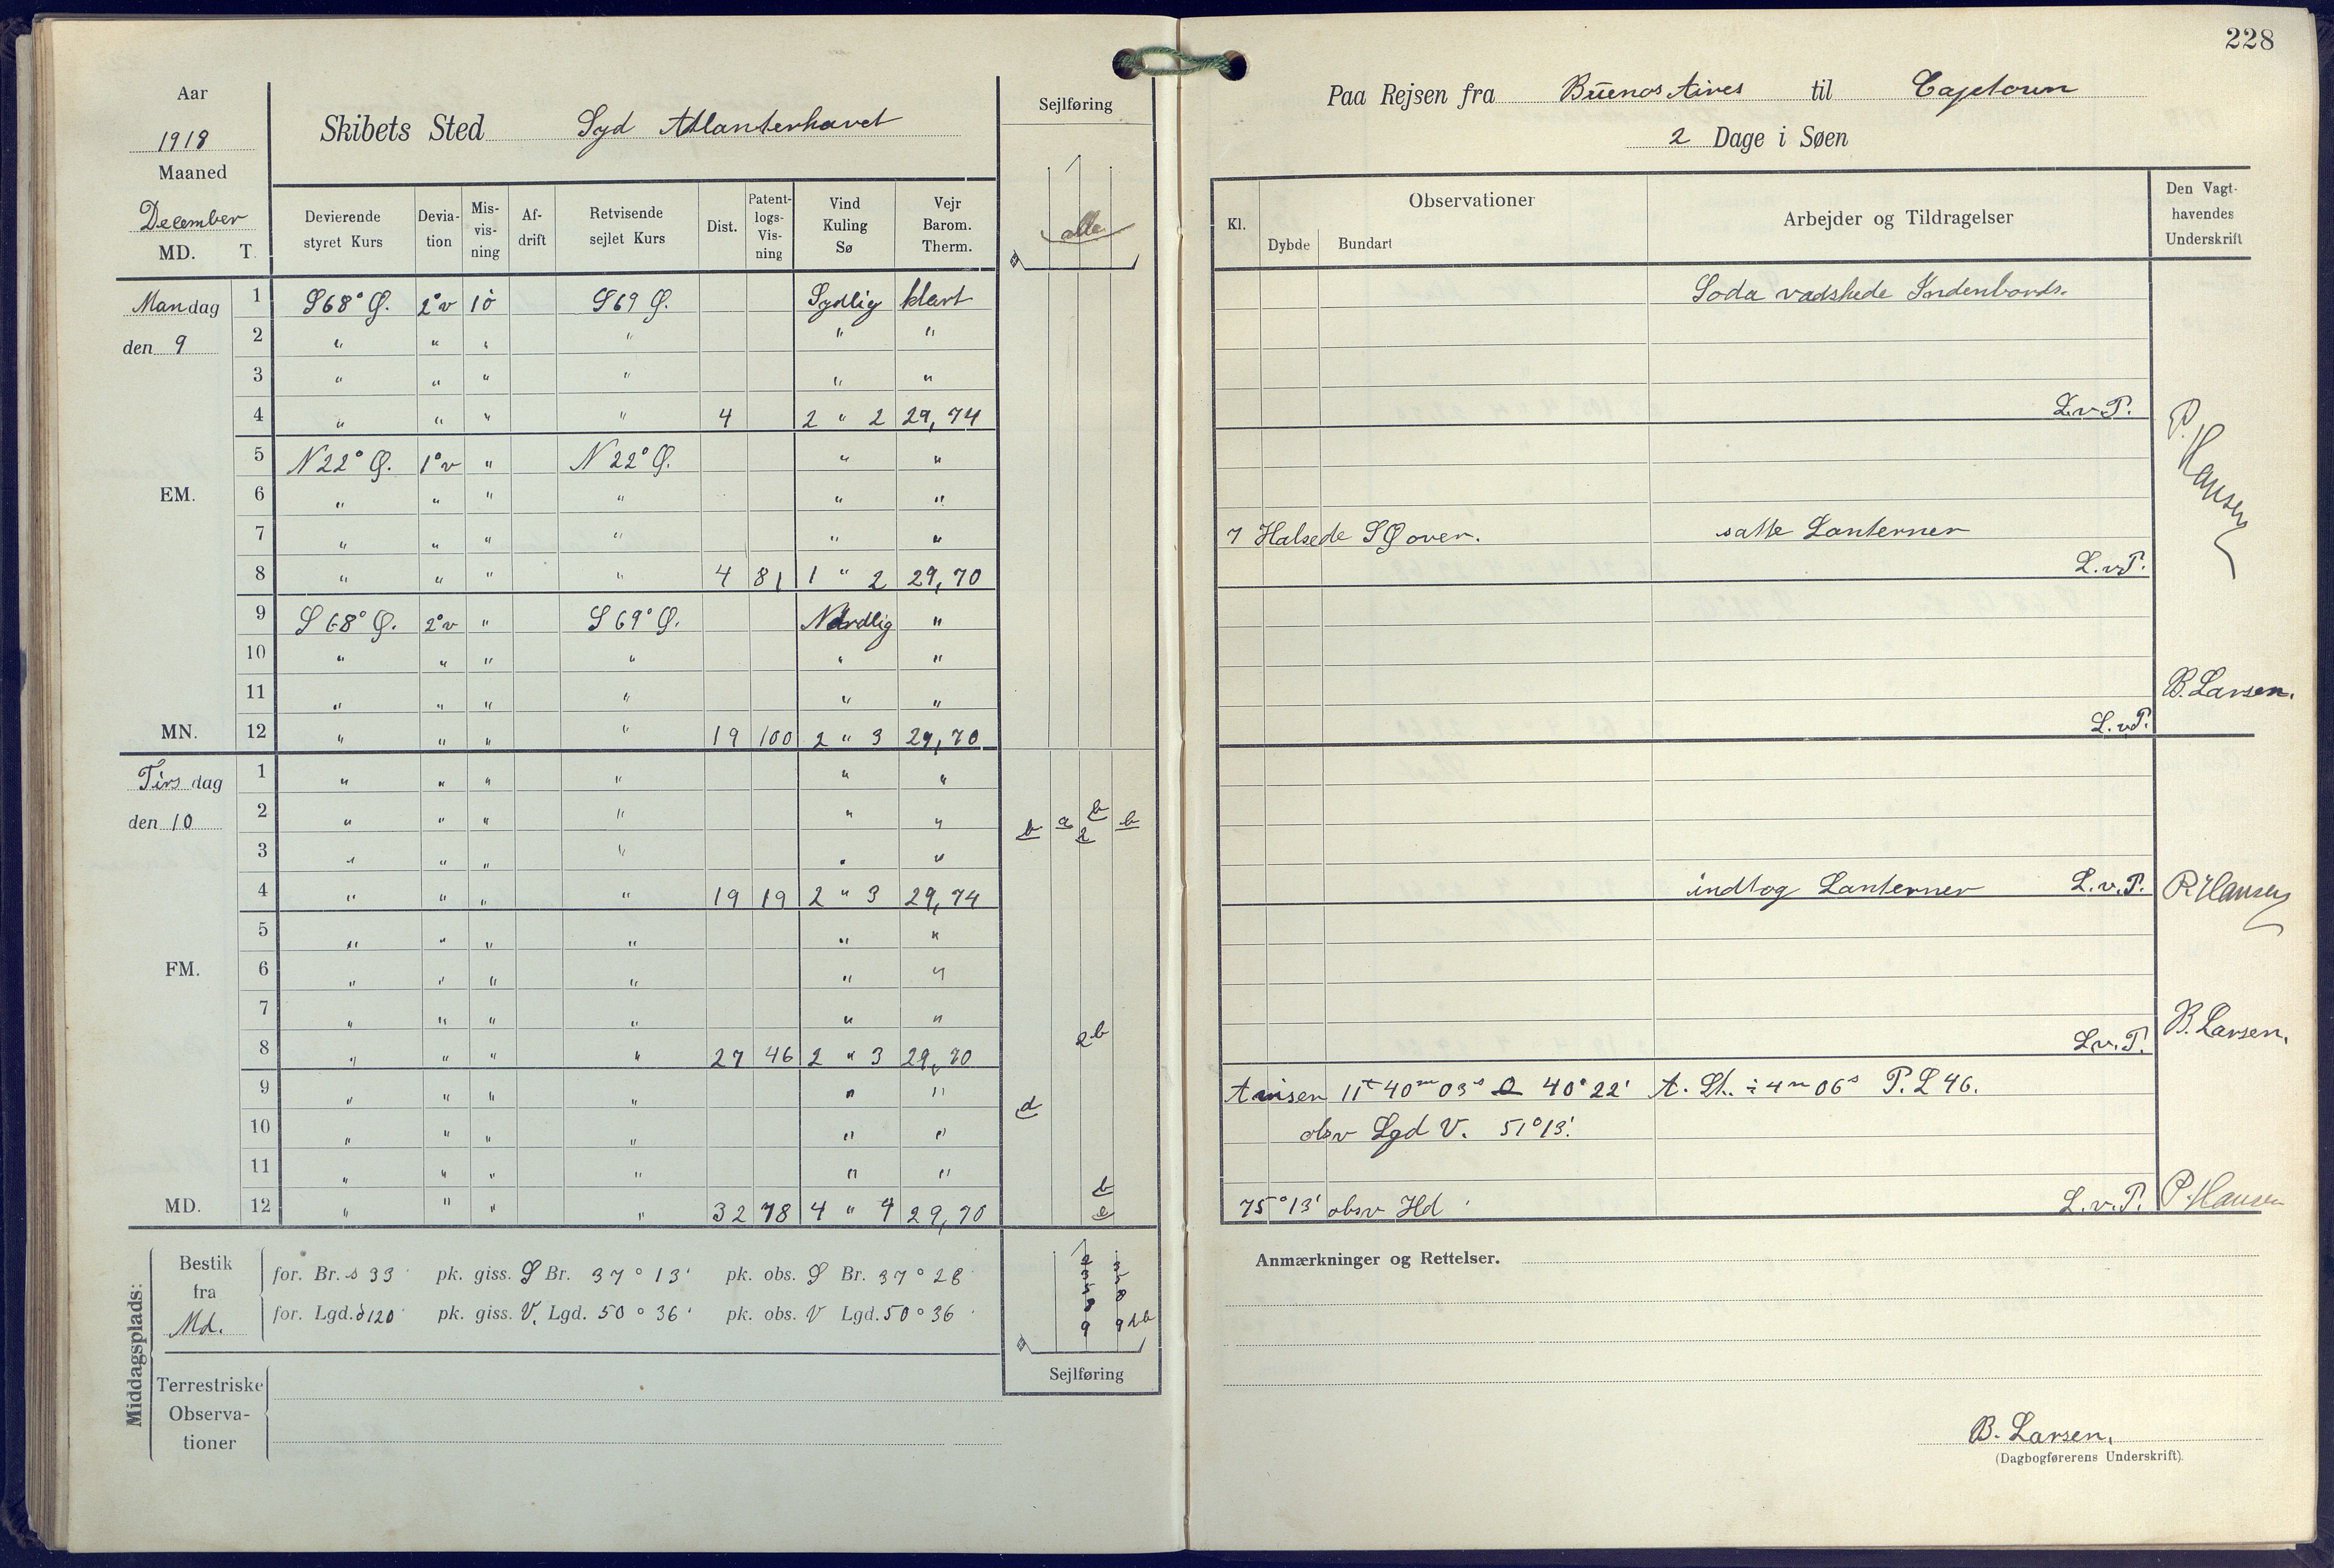 228
Aar
1918
Maaned
December
MD. T.
Skibets Sted Syd Atlanterhavet
Sejlføring
alle
Devierende styret Kurs
Deviation
Misvisning
Afdrift
Retvisende sejlet Kurs
Dist.
Patentlogs-Visning
Vind Kuling Sø
Vejr Barom. Therm.
Mandag 1 S68° Ø. 2°v 1ö S69 Ø. Sydlig klart
den 9 2 " " " " " "
3 " " " " " "
4 " " " " 4 2 " 2 29,74
5 N22° Ø. 1°v " N22° Ø. " "
EM. 6 " " " " " "
7 " " " " " "
8 " " " " 4 81 1 " 2 29,70
9 S68° Ø. 2°v " S69° Ø. Nordlig "
10 " " " " " "
11 " " " " " "
MN. 12 " " " " 19 100 2 " 3 29,70
Tirsdag 1 " " " " " "
den 10 2 " " " " " " b a b 2 b
3 " " " " " "
4 " " " " 19 19 2 " 3 29,74
5 " " " " " "
FM. 6 " " " " " "
7 " " " " " "
8 " " " " 27 46 2 " 3 29,70 2b
9 " " " " " " d
10 " " " " " "
11 " " " " " " b
MD. 12 " " " " 32 78 4 " 4 29,70
Middagsplads:
Bestik fra Md.
for. Br. s 33 pk. giss. S Br. 37° 13' pk. obs. S Br. 37° 28
for. Lgd. ö 120 pk. giss. V. Lgd. 50° 36' pk. obs. V Lgd. 50° 36
Sejlføring
Terrestriske Observationer
Paa Rejsen fra Buenos Aires til Capetown
2 Dage i Søen
Kl.
Observationer
Dybde
Bundart
Arbejder og Tildragelser
Den Vagthavendes Underskrift
Soda vadskede Indenbords.
L.v.P.
P. Hansen
7 Halsede SØ over. satte Lanterner
L.v.P.
B. Larsen.
L.v.P.
indtog Lanterner L.v.P. P. Hansen
B. Larsen.
L.v.P.
11t 40m 03s 40° 22' A. St. ÷ 4m 06s P. L 46.
obsv Lgd V. 51° 13'.
75° 13' obsv Hd L.v.P. P. Hansen
Anmærkninger og Rettelser.
B. Larsen.
(Dagbogførerens Underskrift)